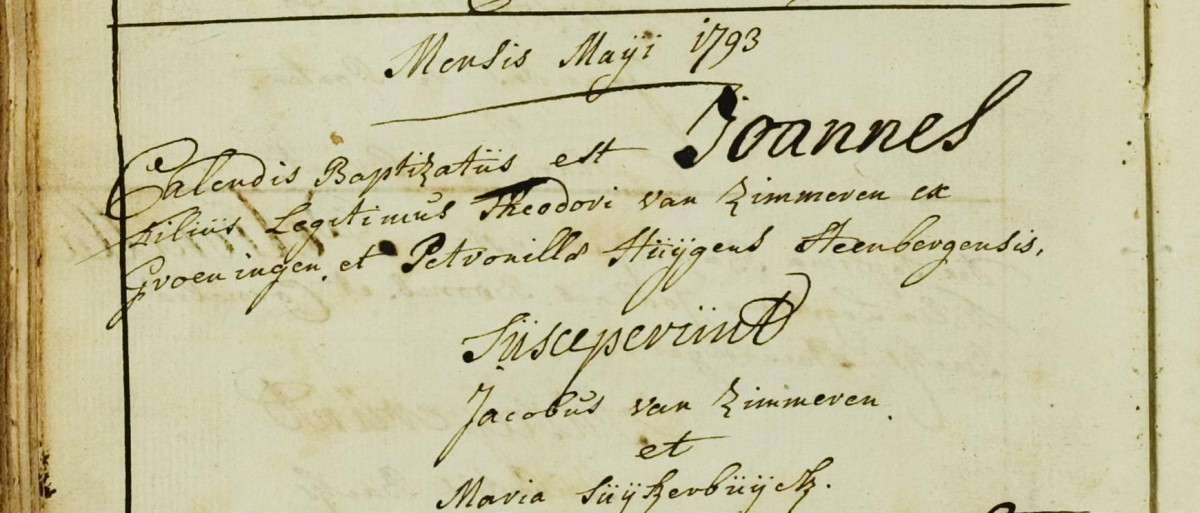 Mensis Mayi 1793
Calendis Baptizatus est Joannes
Filius Legitimus Theodori van Zimmeren ex
Groeningen et Petronillæ Huÿgens Steenbergensis,
Susceperunt
Jacobus van Zimmeren
et
Maria Suÿkerbuÿck.